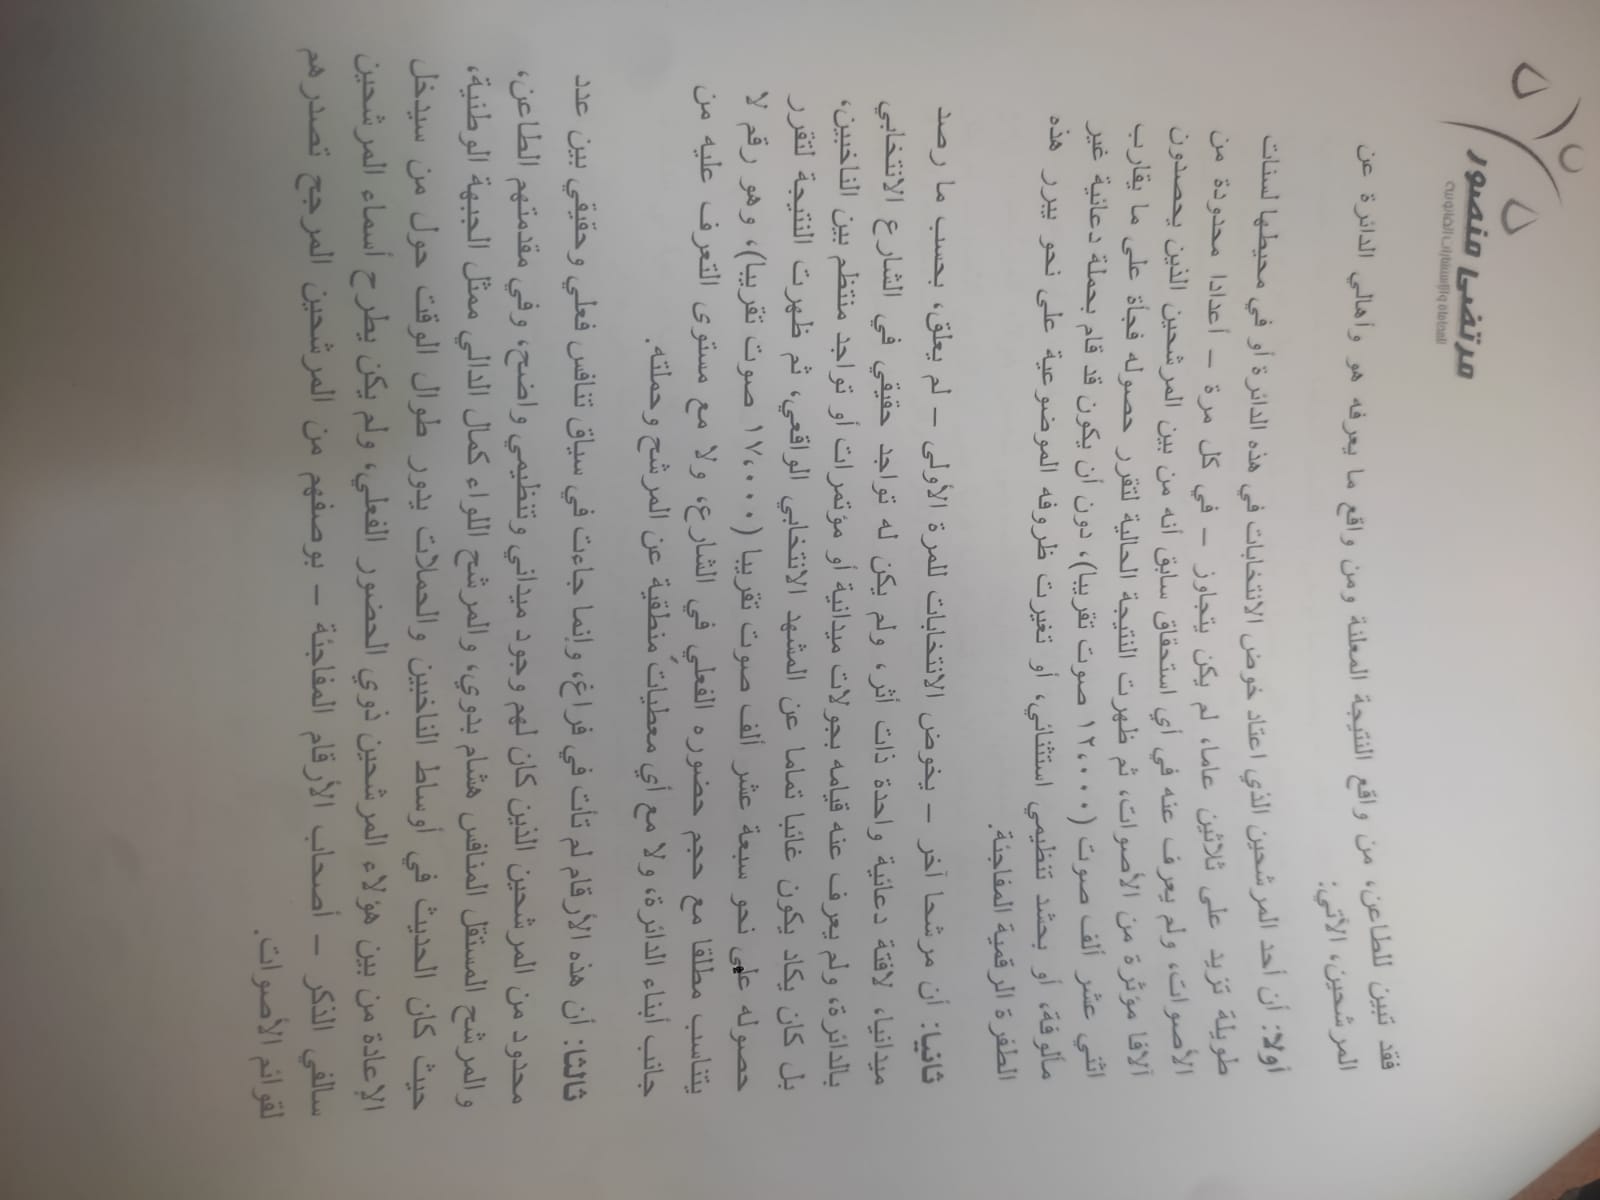 مرتضى منصور
للمحاماه والاستشارات القانونيه
فقد تبين للطاعن، من واقع النتيجة المعلنة ومن واقع ما يعرفه هو وأهالي الدائرة عن
المرشحين، الآتي:
أولا: أن أحد المرشحين الذي اعتاد خوض الانتخابات في هذه الدائرة أو في محيطها لسنات
طويلة تزيد على ثلاثين عاما، لم يكن يتجاوز – في كل مرة – أعدادا محدودة من
الأصوات، ولم يعرف عنه في أي استحقاق سابق أنه من بين المرشحين الذين يحصدون
آلافا مؤثرة من الأصوات، ثم ظهرت النتيجة الحالية لتقرر حصوله فجأة على ما يقارب
اثني عشر ألف صوت (١٢،٠٠٠ صوت تقريبا)، دون أن يكون قد قام بحملة دعائية غير
مألوفة، أو بحشد تنظيمي استثنائي، أو تغيرت ظروفه الموضوعية على نحو يبرر هذه
الطفرة الرقمية المفاجئة.
ثانيا: أن مرشحا آخر – يخوض الانتخابات للمرة الأولى – لم يعلق، بحسب ما رصد
ميدانيا، لافتة دعائية واحدة ذات أثر، ولم يكن له تواجد حقيقي في الشارع الانتخابي
بالدائرة، ولم يعرف عنه قيامه بجولات ميدانية أو مؤتمرات أو تواجد منتظم بين الناخبين،
بل كان يكاد يكون غائبا تماما عن المشهد الانتخابي الواقعي، ثم ظهرت النتيجة لتقرر
حصوله على نحو سبعة عشر ألف صوت تقريبا (١٧،٠٠٠ صوت تقريبا)، وهو رقم لا
يتناسب مطلقا مع حجم حضوره الفعلي في الشارع، ولا مع مستوى التعرف عليه من
جانب أبناء الدائرة، ولا مع أي معطيات منطقية عن المرشح وحملته.
ثالثا: أن هذه الأرقام لم تأت في فراغ، وإنما جاءت في سياق تنافس فعلي وحقيقي بين عدد
محدود من المرشحين الذين كان لهم وجود ميداني وتنظيمي واضح، وفي مقدمتهم الطاعن،
والمرشح المستقل المنافس هشام بدوي، والمرشح اللواء كمال الدالي ممثل الجبهة الوطنية،
حيث كان الحديث في أوساط الناخبين والحملات يدور طوال الوقت حول من سيدخل
الإعادة من بين هؤلاء المرشحين ذوي الحضور الفعلي، ولم يكن يطرح أسماء المرشحين
سالفي الذكر – أصحاب الأرقام المفاجئة – بوصفهم من المرشحين المرجح تصدرهم
لقوائم الأصوات.